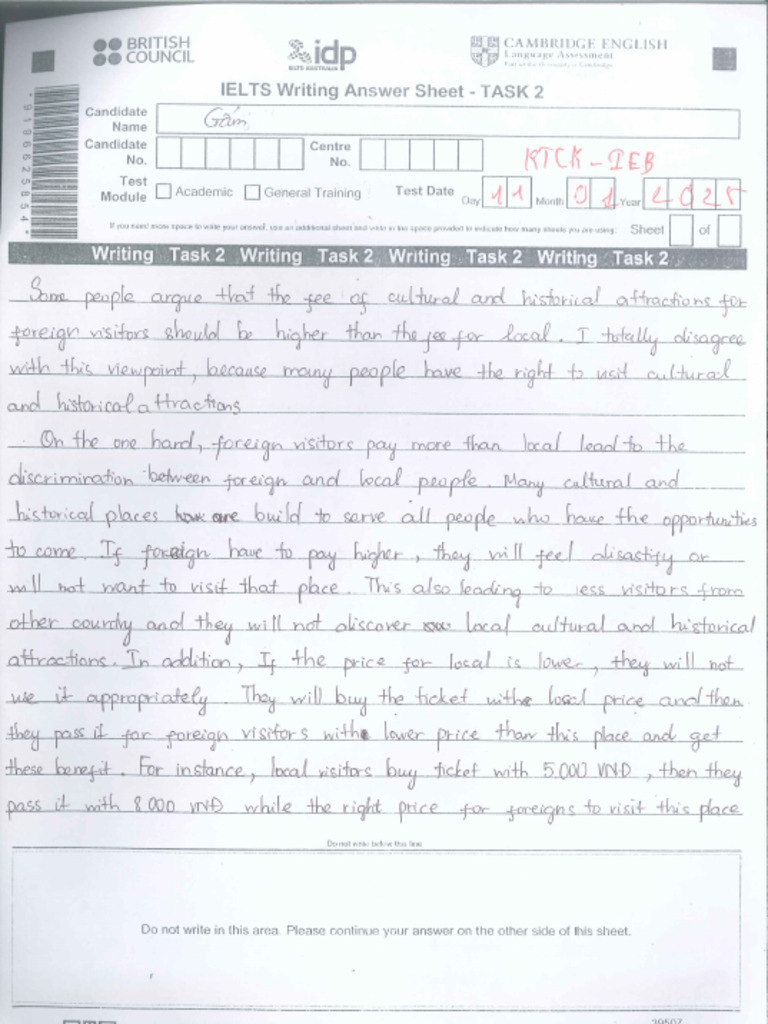 BRITISH COUNCIL
idp
IELTS AUSTRALIA
CAMBRIDGE ENGLISH
Language Assessment
Part of the University of Cambridge
IELTS Writing Answer Sheet - TASK 2
Candidate Name Gấm
Candidate No. Centre No. KTCK - IEB
Test Module Academic General Training Test Date Day 11 Month 01 Year 2025
If you need more space to write your answer, use an additional sheet and write in the space provided to indicate how many sheets you are using: Sheet of
Writing Task 2 Writing Task 2 Writing Task 2 Writing Task 2
Some people argue that the fee of cultural and historical attractions for
foreign visitors should be higher than the fee for local. I totally disagree
with this viewpoint, because many people have the right to visit cultural
and historical attractions
On the one hand, foreign visitors pay more than local lead to the
discrimination between foreign and local people. Many cultural and
historical places are build to serve all people who have the opportunities
to come. If foreign have to pay higher, they will feel disastify or
will not want to visit that place. This also leading to less visitors from
other country and they will not discover local cultural and historical
attractions. In addition, If the price for local is lower, they will not
use it appropriately. They will buy the ticket with local price and then
they pass it for foreign visitors with lower price than this place and get
these benefit. For instance, local visitors buy ticket with 5.000 VNĐ, then they
pass it with 8.000 VNĐ while the right price for foreigns to visit this place
Do not write below this line
Do not write in this area. Please continue your answer on the other side of this sheet.